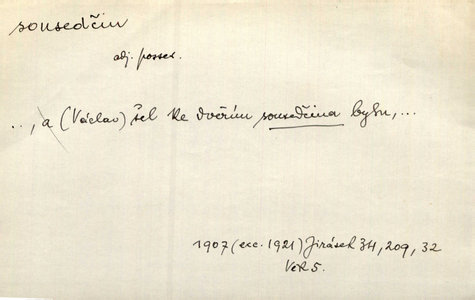 sousedčin
adj. posses.
..., a (Václav) šel ke dveřím sousedčina bytu, ...
1907 (exc. 1921) Jirásek 34, 209, 32
Věk 5.